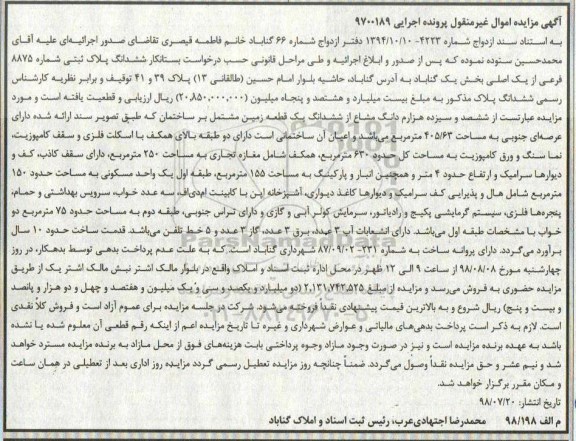 آگهی مزایده اموال غیرمنقول پرونده اجرایی ۹۷۰۰۱۸۹
به استناد سند ازدواج شماره ۴۲۲۳-۱۳۹۴/۱۰/۱۰ دفتر ازدواج شماره ۶۶ گناباد خانم فاطمه قیصری تقاضای صدور اجرائیه‌ای علیه آقای
محمدحسین ستوده نموده که پس از صدور و ابلاغ اجرائیه و طی مراحل قانونی حسب درخواست بستانکار ششدانگ پلاک ثبتی شماره ۸۸۷۵
فرعی از یک اصلی بخش یک گناباد به آدرس گناباد، حاشیه بلوار امام حسین (طالقانی ۱۳) پلاک ۳۹ و ۴۱ توقیف و برابر نظریه کارشناس
رسمی ششدانگ پلاک مذکور به مبلغ بیست میلیارد و هشتصد و پنجاه میلیون (۲۰،۸۵۰،۰۰۰،۰۰۰) ریال ارزیابی و قطعیت یافته است و مورد
مزایده عبارتست از ششصد و سیزده هزارم دانگ مشاع از ششدانگ یک قطعه زمین مشتمل بر ساختمان که طبق تصویر سند ارائه شده دارای
عرصه‌ای جنوبی به مساحت ۴۰۵/۶۳ مترمربع می‌باشد و اعیان آن ساختمانی است دارای دو طبقه بالای همکف با اسکلت فلزی و سقف کامپوزیت،
نما سنگ و ورق کامپوزیت به مساحت کل حدود ۶۳۰ مترمربع، همکف شامل مغازه تجاری به مساحت ۲۵۰ مترمربع، دارای سقف کاذب، کف و
دیوارها سرامیک و ارتفاع حدود ۴ متر و همچنین انبار و پارکینگ به مساحت ۱۵۵ مترمربع، طبقه اول یک واحد مسکونی به مساحت حدود ۱۵۰
مترمربع شامل هال و پذیرایی کف سرامیک و دیوارها کاغذ دیواری، آشپزخانه اپن با کابینت ام‌دی‌اف، سه عدد خواب، سرویس بهداشتی و حمام،
پنجره‌ها فلزی، سیستم گرمایشی پکیج و رادیاتور، سرمایش کولر آبی و گازی و دارای تراس جنوبی، طبقه دوم به مساحت حدود ۷۵ مترمربع دو
خواب با مشخصات طبقه اول می‌باشد. دارای انشعابات آب ۳ عدد، برق ۳ عدد، گاز ۳ عدد و ۵ خط تلفن می‌باشد. قدمت ساخت حدود ۱۰ سال
برآورد می‌گردد. دارای پروانه ساخت به شماره ۳۳۱-۸۷/۰۹/۰۲ شهرداری گناباد است. که به علت عدم پرداخت بدهی توسط بدهکار، در روز
چهارشنبه مورخ ۹۸/۰۸/۰۸ از ساعت ۹ الی ۱۲ ظهر در محل اداره ثبت اسناد و املاک واقع در بلوار مالک اشتر نبش مالک اشتر یک از طریق
مزایده حضوری به فروش می‌رسد و مزایده از مبلغ ۲،۱۳۱،۷۴۲،۵۲۵ (دو میلیارد و یکصد و سی و یک میلیون و هفتصد و چهل و دو هزار و پانصد
و بیست و پنج) ریال شروع و به بالاترین قیمت پیشنهادی نقداً فروخته می‌شود. شرکت در جلسه مزایده برای عموم آزاد است و فروش کلاً نقدی
است. لازم به ذکر است پرداخت بدهی‌های مالیاتی و عوارض شهرداری و غیره تا تاریخ مزایده اعم از اینکه رقم قطعی آن معلوم شده یا نشده
باشد به عهده برنده مزایده است و نیز در صورت وجود مازاد وجوه پرداختی بابت هزینه‌های فوق از محل مازاد به برنده مزایده مسترد خواهد
شد و نیم عشر و حق مزایده نقداً وصول می‌گردد. ضمناً چنانچه روز مزایده تعطیل رسمی گردد مزایده روز اداری بعد از تعطیلی در همان ساعت
و مکان مقرر برگزار خواهد شد.
تاریخ انتشار: ۹۸/۰۷/۲۰
م الف ۹۸/۱۹۸ محمدرضا اجتهادی‌عرب، رئیس ثبت اسناد و املاک گناباد